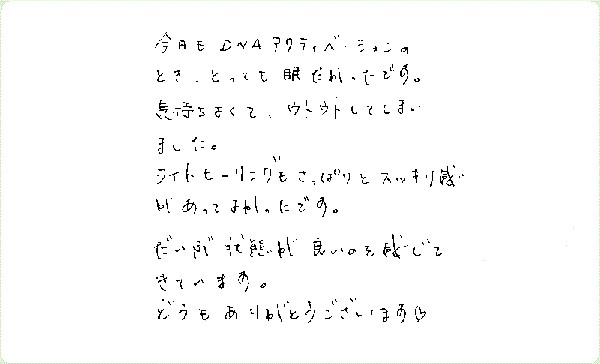 今日もDNAアクティベーションの
とき、とっても眠たかったです。
気持ちよくて、ウトウトしてしまい
ました。
ライトヒーリングもさっぱりとスッキリ感
があってよかったです。
だいぶ状態が良いのを感じて
きています。
どうもありがとうございます